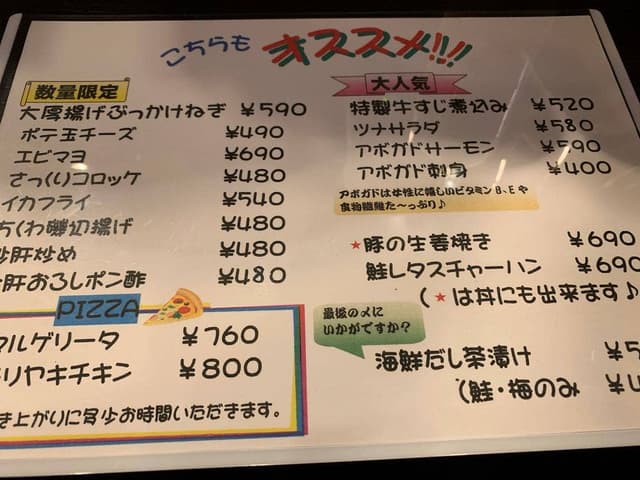 こちらも オススメ!!!
数量限定
大厚揚げぶっかけねぎ ¥590
ポテ玉チーズ ¥490
エビマヨ ¥690
さっくりコロッケ ¥480
イカフライ ¥540
ちくわ磯辺揚げ ¥480
砂肝炒め ¥480
肝おろしポン酢 ¥480
PIZZA
マルゲリータ ¥760
リヤキチキン ¥800
き上がりに多少お時間いただきます。
大人気
特製牛すじ煮込み ¥520
ツナサラダ ¥580
アボガドサーモン ¥590
アボガド刺身 ¥400
アボガドは女性に嬉しいビタミンB、Eや
食物繊維た〜っぷり♪
★豚の生姜焼き ¥690
鮭レタスチャーハン ¥690
(★は丼にも出来ます♪
最後の〆に
いかがですか?
海鮮だし茶漬け ¥5
(鮭・梅のみ ¥4